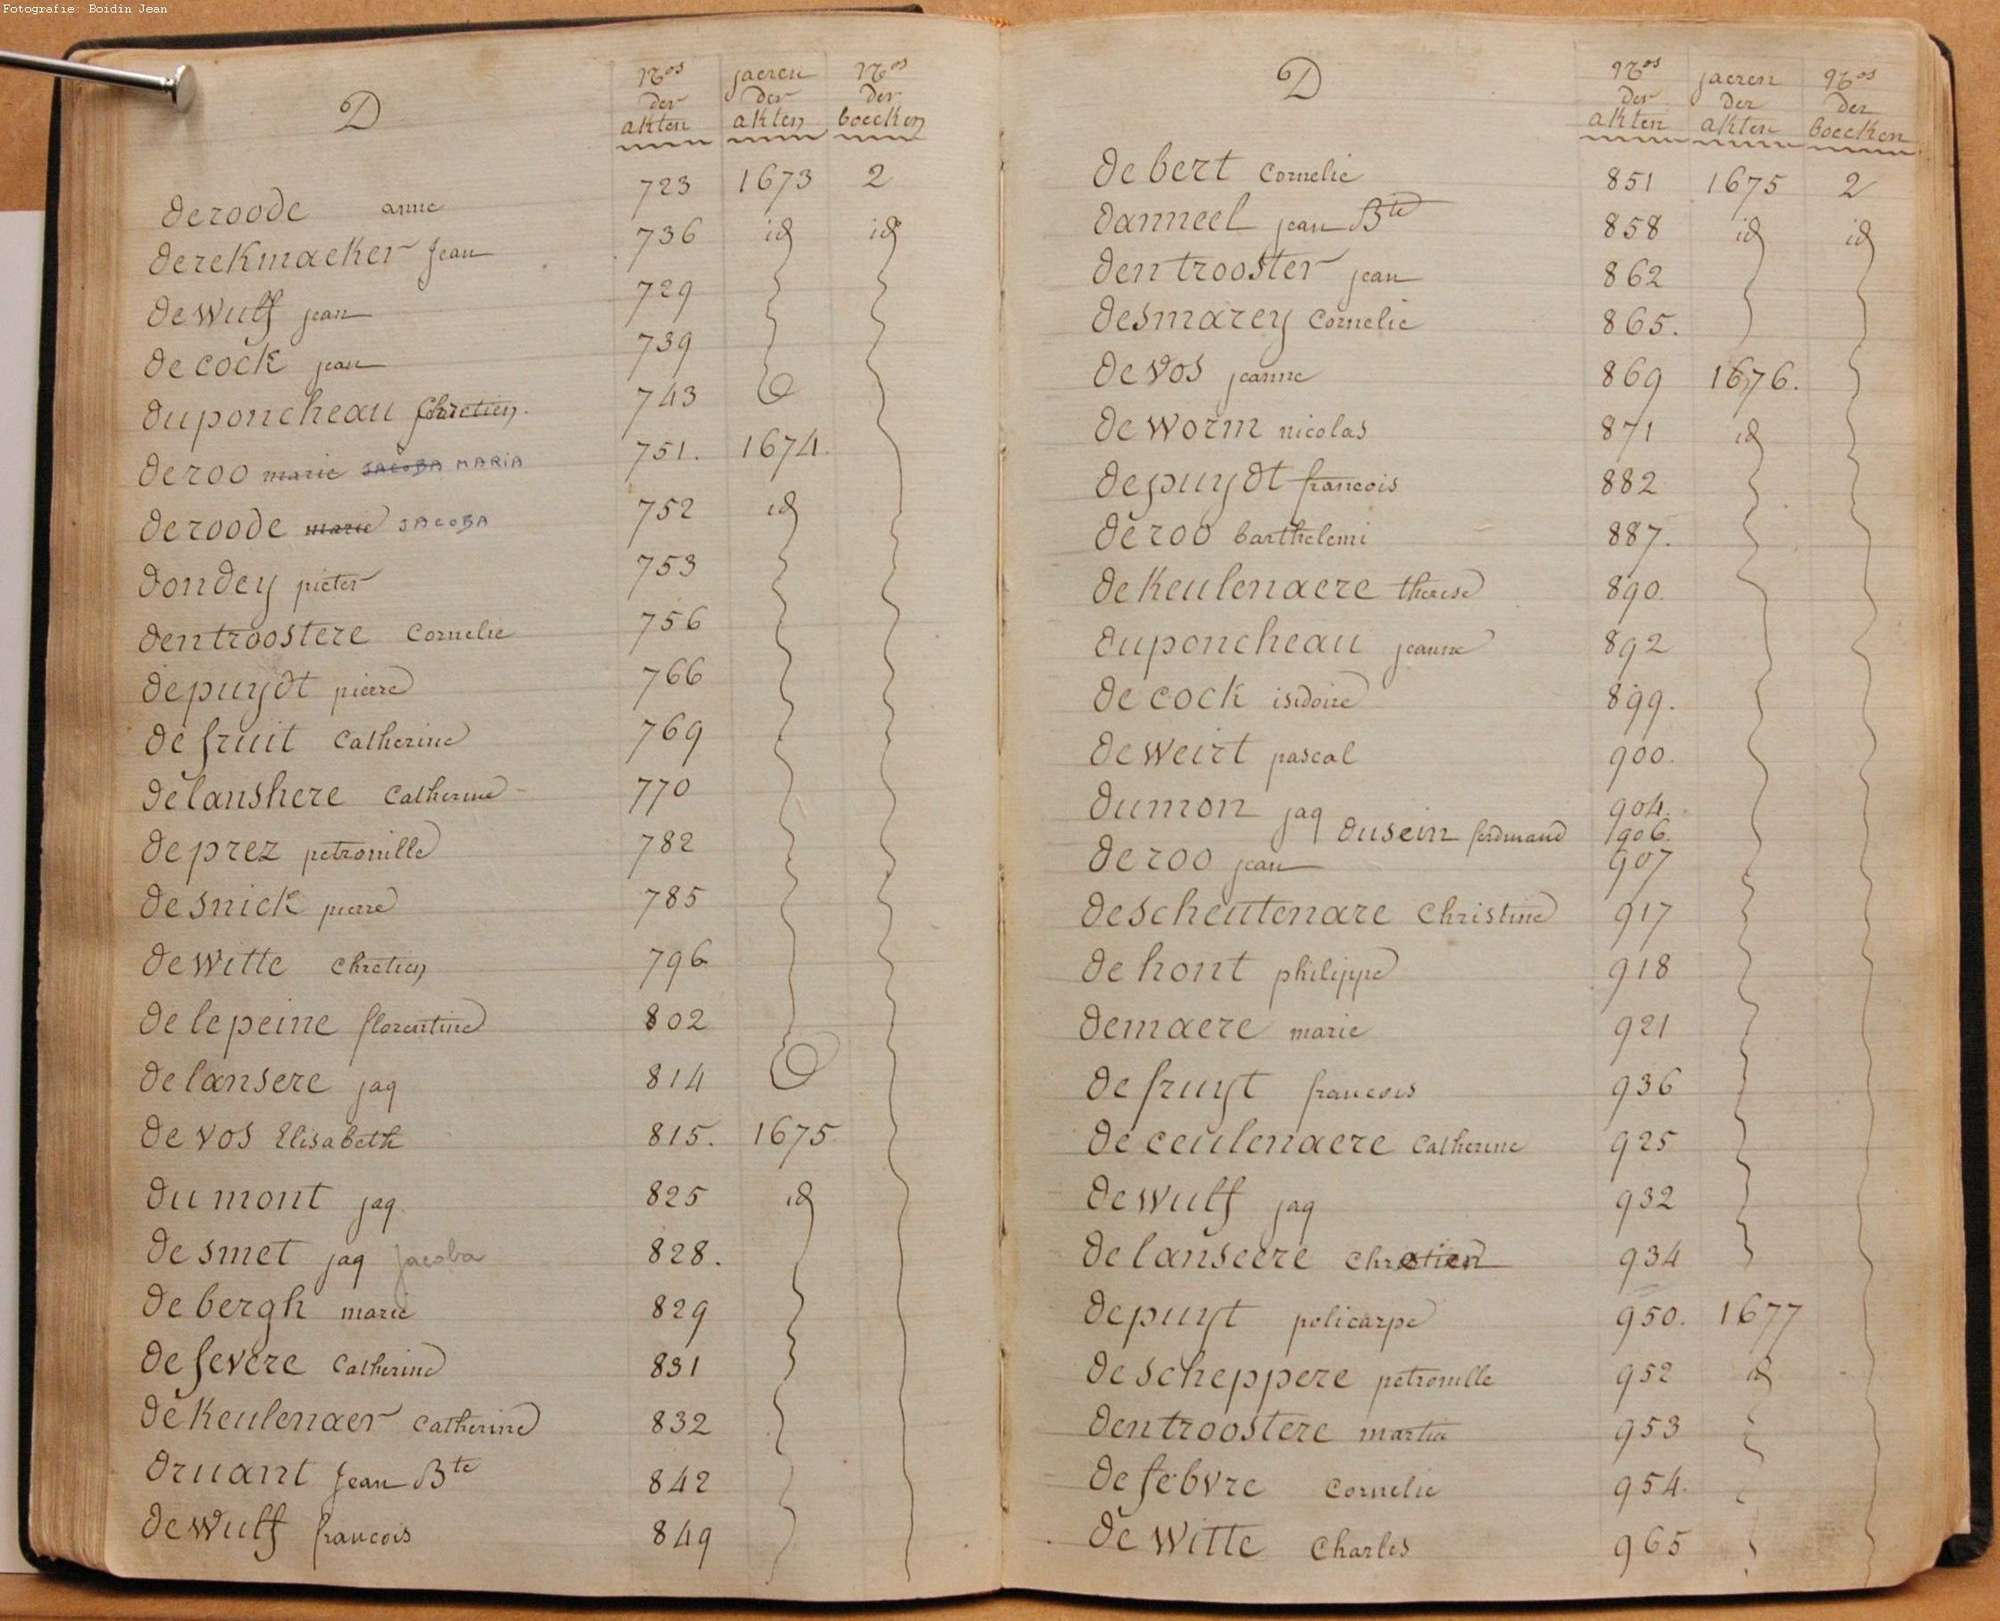 Fotografie: Boidin Jean
D
Nos der akten
jaeren der akten
Nos der boecken
deroode anne 723 1673 2
derekmaeker Jean 736 id id
dewulf jean 729
de cock jean 739
duponcheau Chretien. 743
deroo marie JACOBA MARIA 751. 1674.
deroode marie JACOBA 752 id
dondey pieter 753
dentroostere Cornelie 756
depuydt pierre 766
de fruit Catherine 769
delanshere Catherine 770
deprez petronille 782
de snick pierre 785
dewitte Chretien 796
de lepeine florentine 802
delansere jaq 814
de vos Elisabeth 815. 1675
du mont jaq 825 id
de smet jaq Jacoba 828.
de bergh marie 829
de fevere Catherine 831
de Keulenaer Catherine 832
druant Jean Bte 842
dewulf francois 849
D
Nos der akten
jaeren der akten
Nos der boecken
de bert Cornelie 851 1675 2
danneel jean Bte 858 id id
den trooster jean 862
desmarey Cornelie 865.
de vos jeanne 869 1676.
de worm nicolas 871 id
depuydt francois 882
de roo barthelemi 887.
de Keulenaere therese 890.
duponcheau jeanne 892
de cock isidoire 899.
deweirt pascal 900.
dumon jaq 904.
dusein ferdinand 906.
de roo jean 907
descheutenare Christine 917
de hont philippe 918
demaere marie 921
de fruyt francois 936
de ceulenaere Catherine 925
dewulf jaq 932
de lanseere Chretien 934
depuyt policarpe 950. 1677
de scheppere petronille 952 id
dentroostere martin 953
de febvre Cornelie 954.
de Witte Charles 965